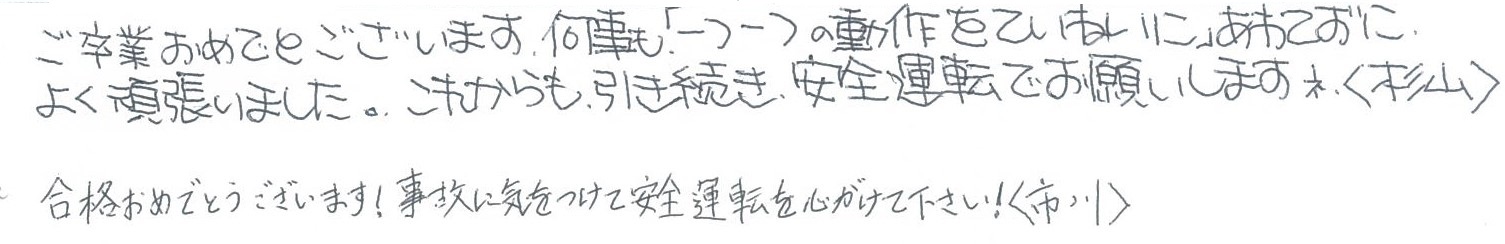 ご卒業おめでとございます。何事も「一つ一つの動作をていねいに」あわておずに、
よく頑張いました。これからも、引き続き、安全運転でお願いしますネ、〈杉山〉
合格おめでとうございます!事故に気をつけて安全運転を心がけて下さい!〈市川〉